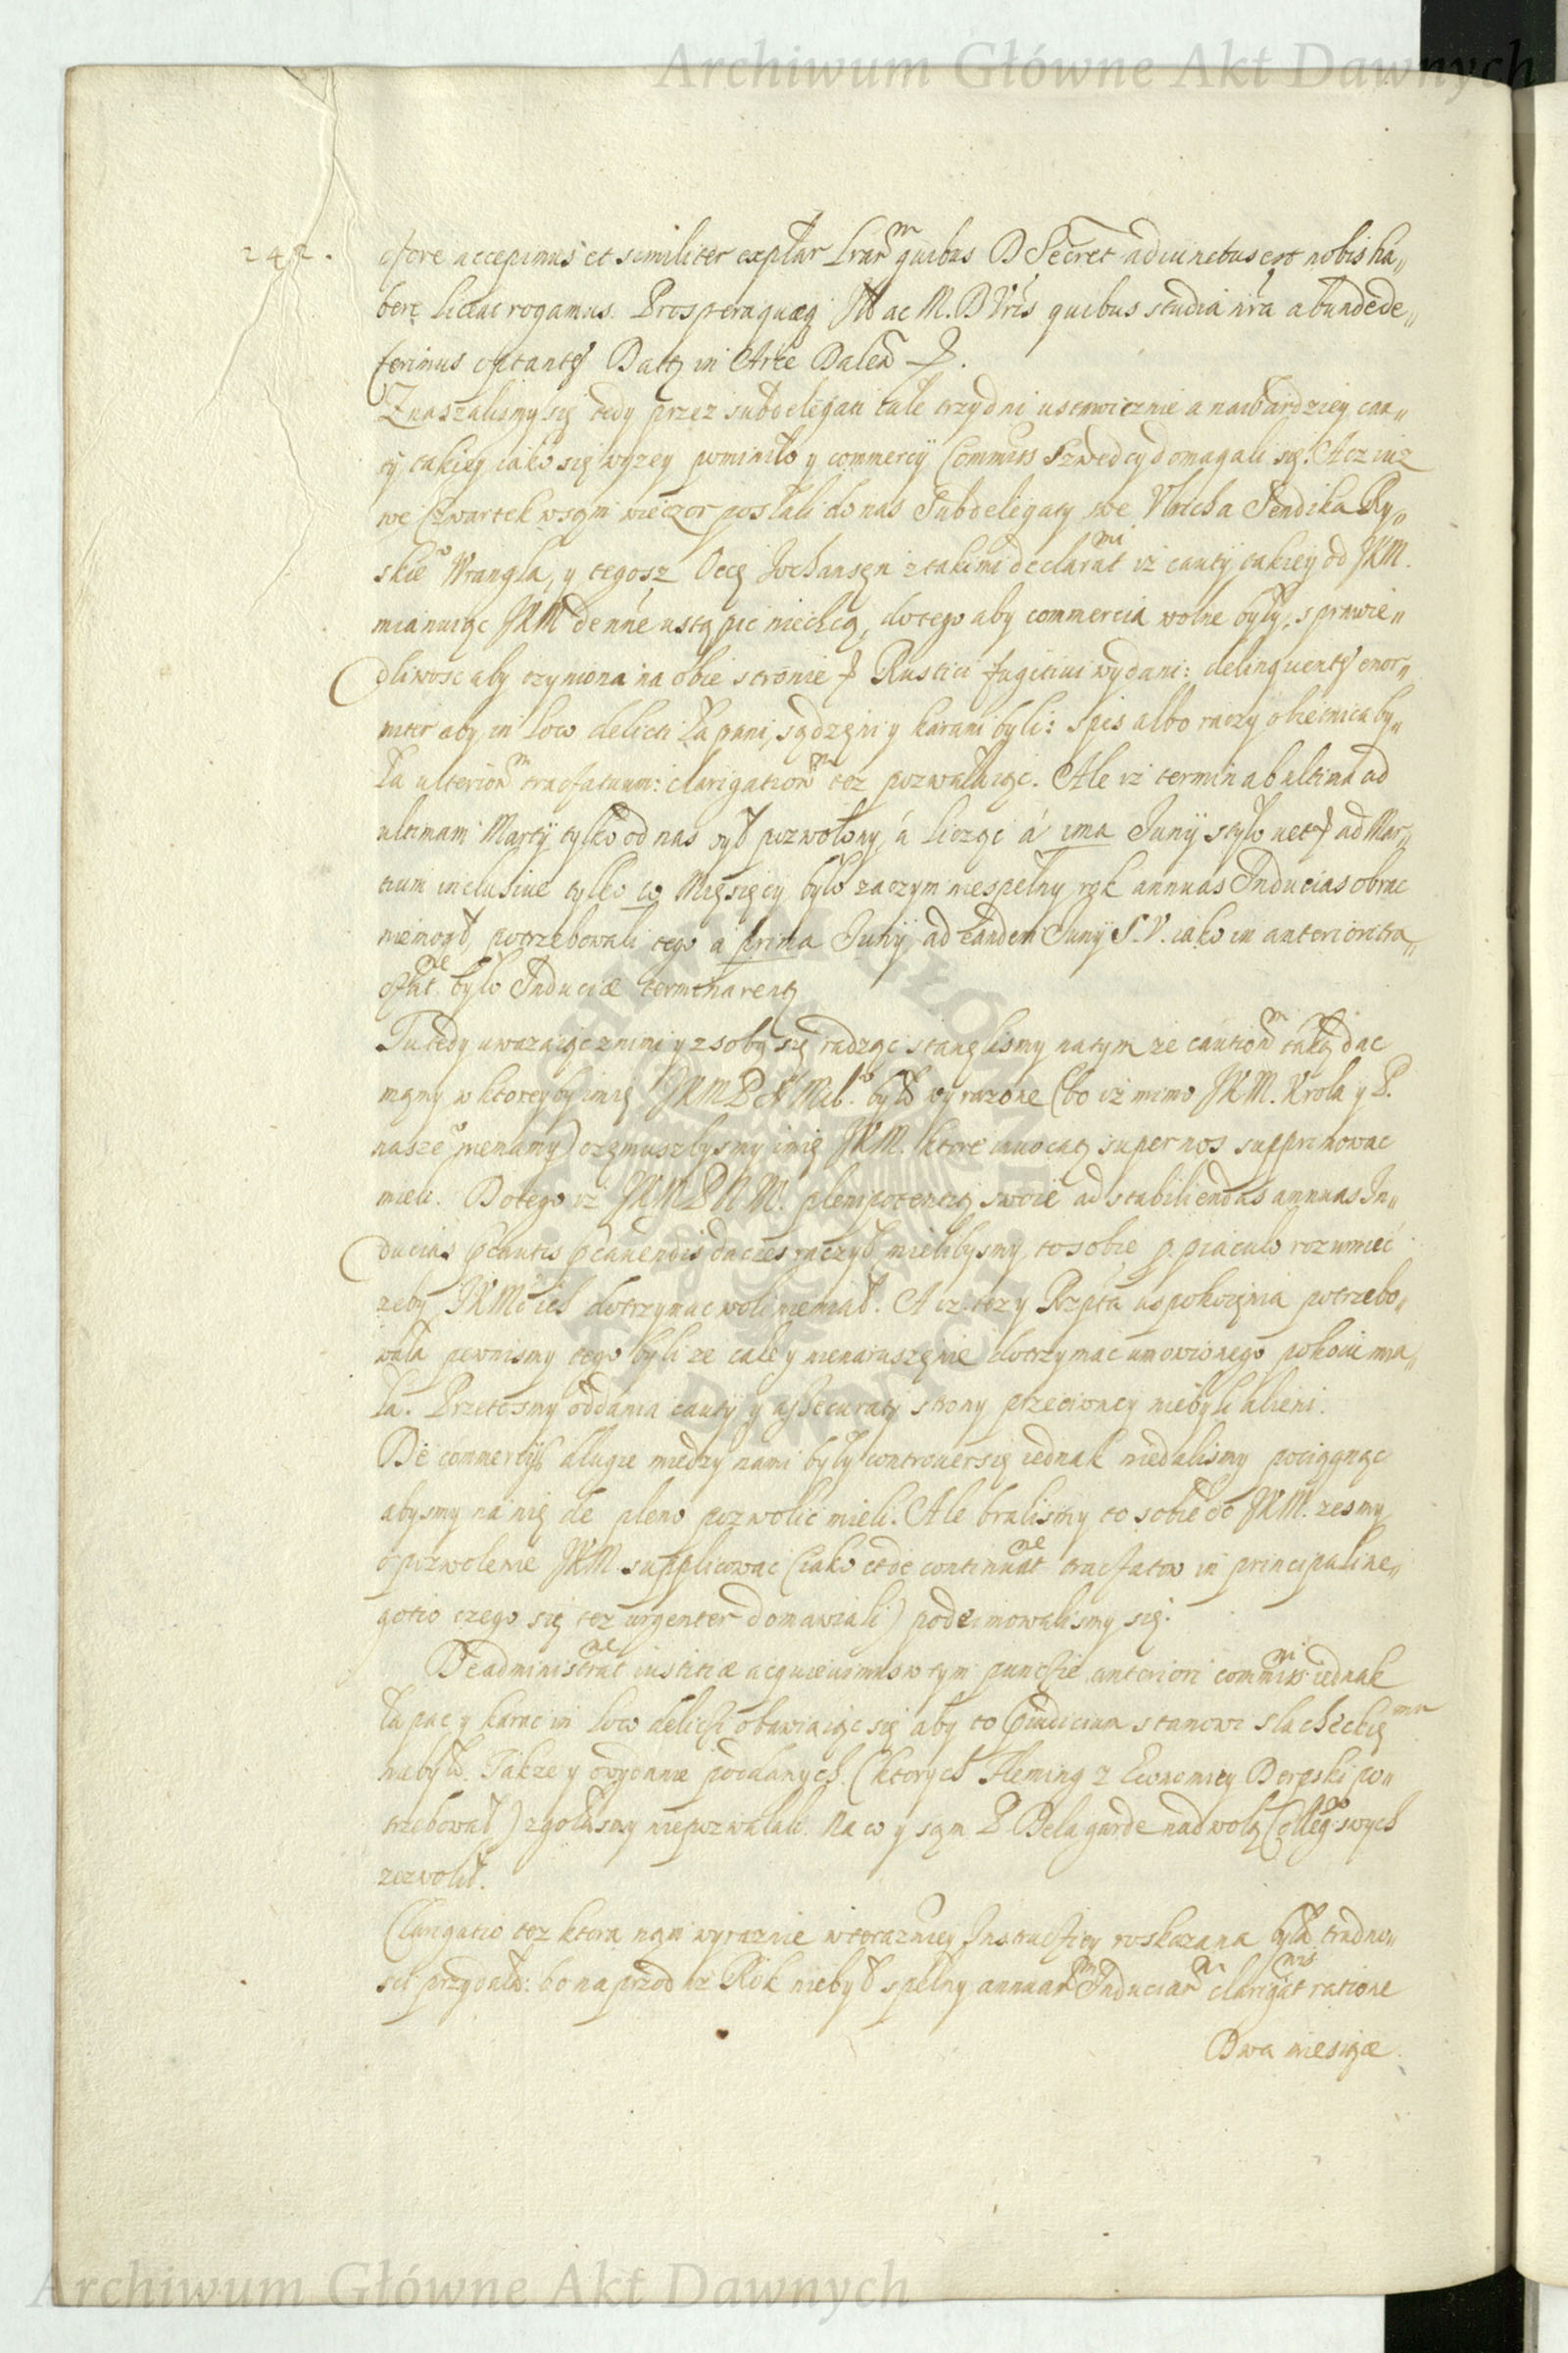 Archiwum Główne Akt Dawnych
242.
ofore accepimus et similiter explar Lrarm quibus D Secret adiunctus est nobis ha„
bere liceat rogamus. Prospera quæq Ill ac M. D Vris quibus studia nra abunde de„
ferimus optantes Datt in Arce Dalen
Znaszalismy się tedy przez subdelegati całe trzy dni ustawicznie a naibardziey cau„
tÿ takiey iako się wyzey pominiło y commercÿ Commiss Szwedcy domagali się. Acz iuz
we Czwartek w sąm wieczor posłali do nas Subdelegaty swe Vlricha Sendika Ry„
skieo Wrangla, y tegosz Ocę Jochansęn z takimi declaratmi iz cautÿ takiey od JKM.
mianuiąc JKM de nne ustąpic niechcą, do tego aby commercia wolne były, sprawie„
dliwosc aby czyniona na obie stronie Rustici fugitiui wydani: delinquentes enor„
miter aby in loco delicti łapani, sądzęni y karani byli: spis albo raczy obietnica by„
ła ulteriorm tractatuum: clarigationm tez pozwalaiąc. Ale iz termin ab ultima ad
ultimam Martÿ tylko od nas był pozwolony, á licząc á ima Junÿ stylo uet ad Mar„
tium inclusiue tylko 10 Mięsięcy było zaczym niespełny rok annuas Inducias obrac
niemogł, potrzebowali tego a prima Junÿ ad eandem Junÿ S.V. iako in anteriori tra„
ctatne było Induciæ terminarentq
Tu tedy uwazaiąc z nimi y z sobą się radząc stanęlismy na tym ze cautionm taką dac
mamy w ktorey by imię JKM P N Milo. było wyrazone (bo iz mimo JKM. Krola y P.
naszeo niemamy) częmuszbysmy imię JKM. ktore inuocatq super nos supprimowac
mieli. Do tego iz JKM P N M. plenipotentią swoie ad stabiliendas annuas In„
ducias cautis cauendis dac zes raczył, mielibysmy to sobie p piaculo rozumieć
zeby JKMc ich dotrzymac woli niemiał. A iz tez y Rzpta uspokoięnia potrzebo„
wała pewnismy tego byli ze cale y nienaruszęnie dotrzymac umowionego pokoiu mia„
ła. Przetosmy od dania cautÿ y assecuratÿ strony przeciwney niebyli alieni.
De commercÿs długie między nami były controuersię iednak niedalismy pociągnąc
abysmy na nię de pleno pozwolic mieli. Ale bralismy to sobie do JKM. zesmy
o pozwolenie JKM. supplicowac (iako et de continuatne tractatow in principali ne„
gotio czego się tez urgenter domawiali) podeimowalismy się.
De administratne iustitiæ acquieuimus w tym punctie anteriori commissni iednak
łapac y karac in loco delicti obawiaiąc się aby to iudicium stanowi slacheckięmu
niebyło. Takze y owydanie poddanych (ktorych Fleming z Economiey Derpski po„
trzebował) zgołasmy niepozwalali. Na co y sąm P Delagarde nad wolą Collegow swych
zezwolił.
Clarigatio tez ktora nąm wyraznie w terazniey Instructiey roskazana była trudno„
sci przydała: bo naprzod iz Rok niebył spełny annuarm Induciarm clarigatnis ratione
Dwa miesiące.
Archiwum Główne Akt Dawnych